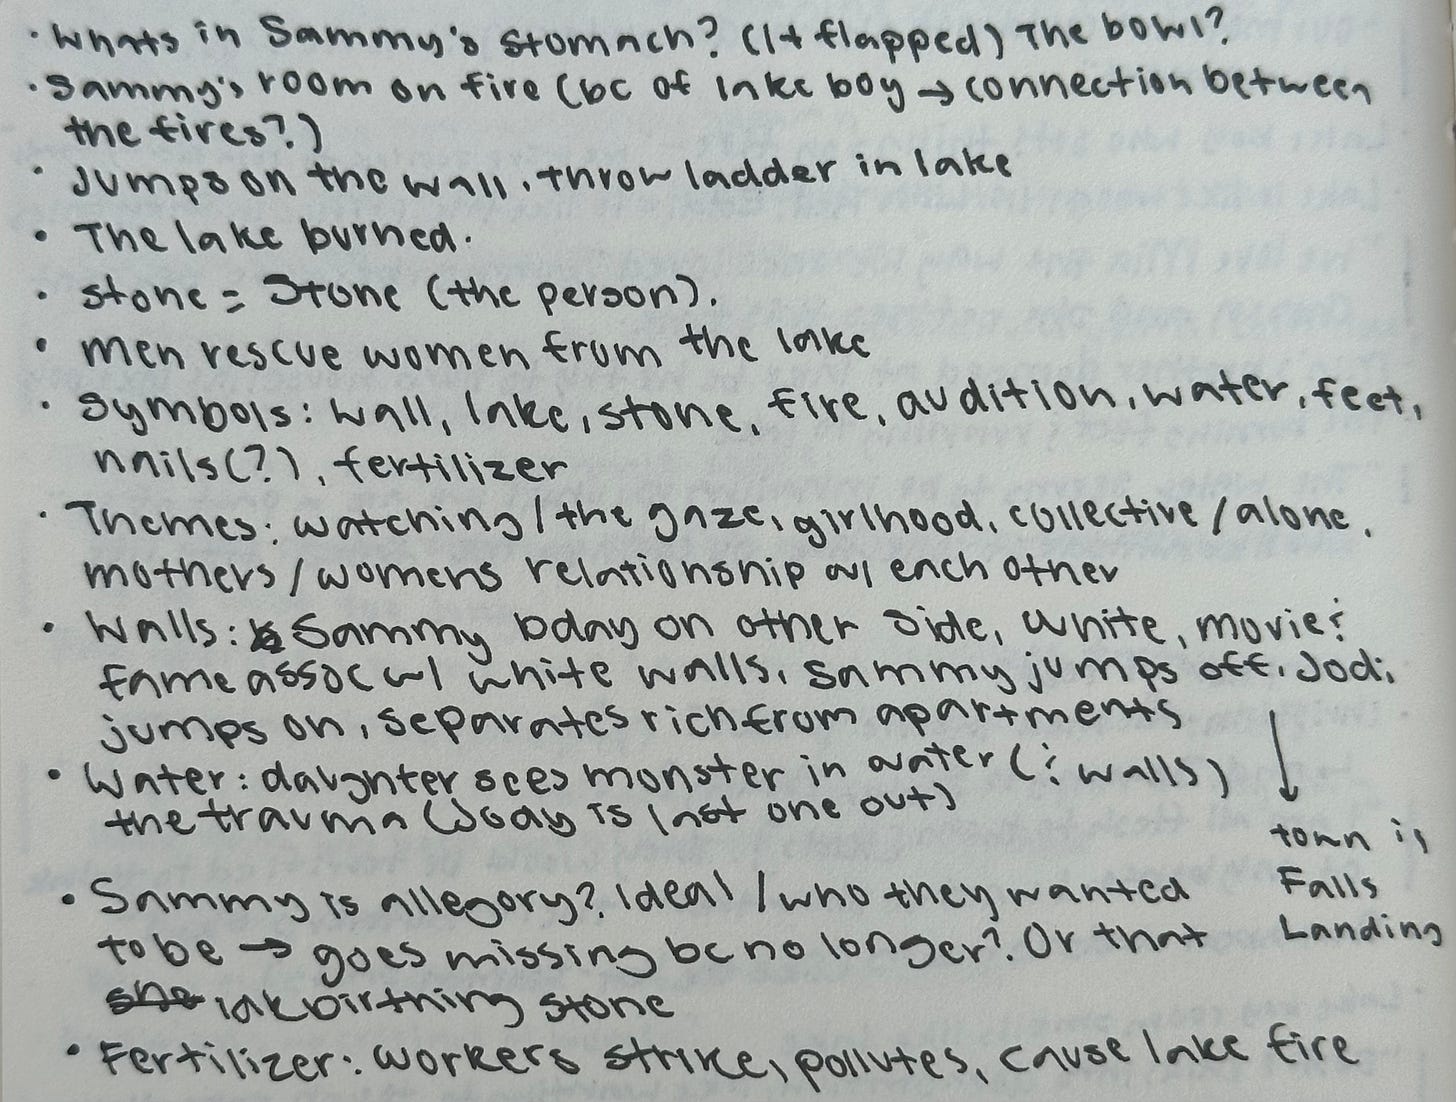 · Whats in Sammy's stomach? (It flapped) The bowl?
· Sammy's room on fire (bc of lake boy → connection between
the fires?)
· Jumps on the wall, throw ladder in lake
· The lake burned.
· stone = Stone (the person).
· men rescue women from the lake
· Symbols: wall, lake, stone, fire, audition, water, feet,
nails(?), fertilizer
· Themes: watching/the gaze, girlhood, collective/alone,
mothers/womens relationship w/ each other
· Walls: Sammy bday on other side, white, movie:
fame assoc w/ white walls, Sammy jumps off, Jodi
jumps on, separates rich from apartments
· Water: daughter sees monster in water (: walls)
the trauma (Woay is last one out)
town is
Falls
Landing
· Sammy is allegory?, Ideal/who they wanted
to be → goes missing bc no longer? Or that
she lak birthing stone
· Fertilizer: workers strike, pollutes, cause lake fire